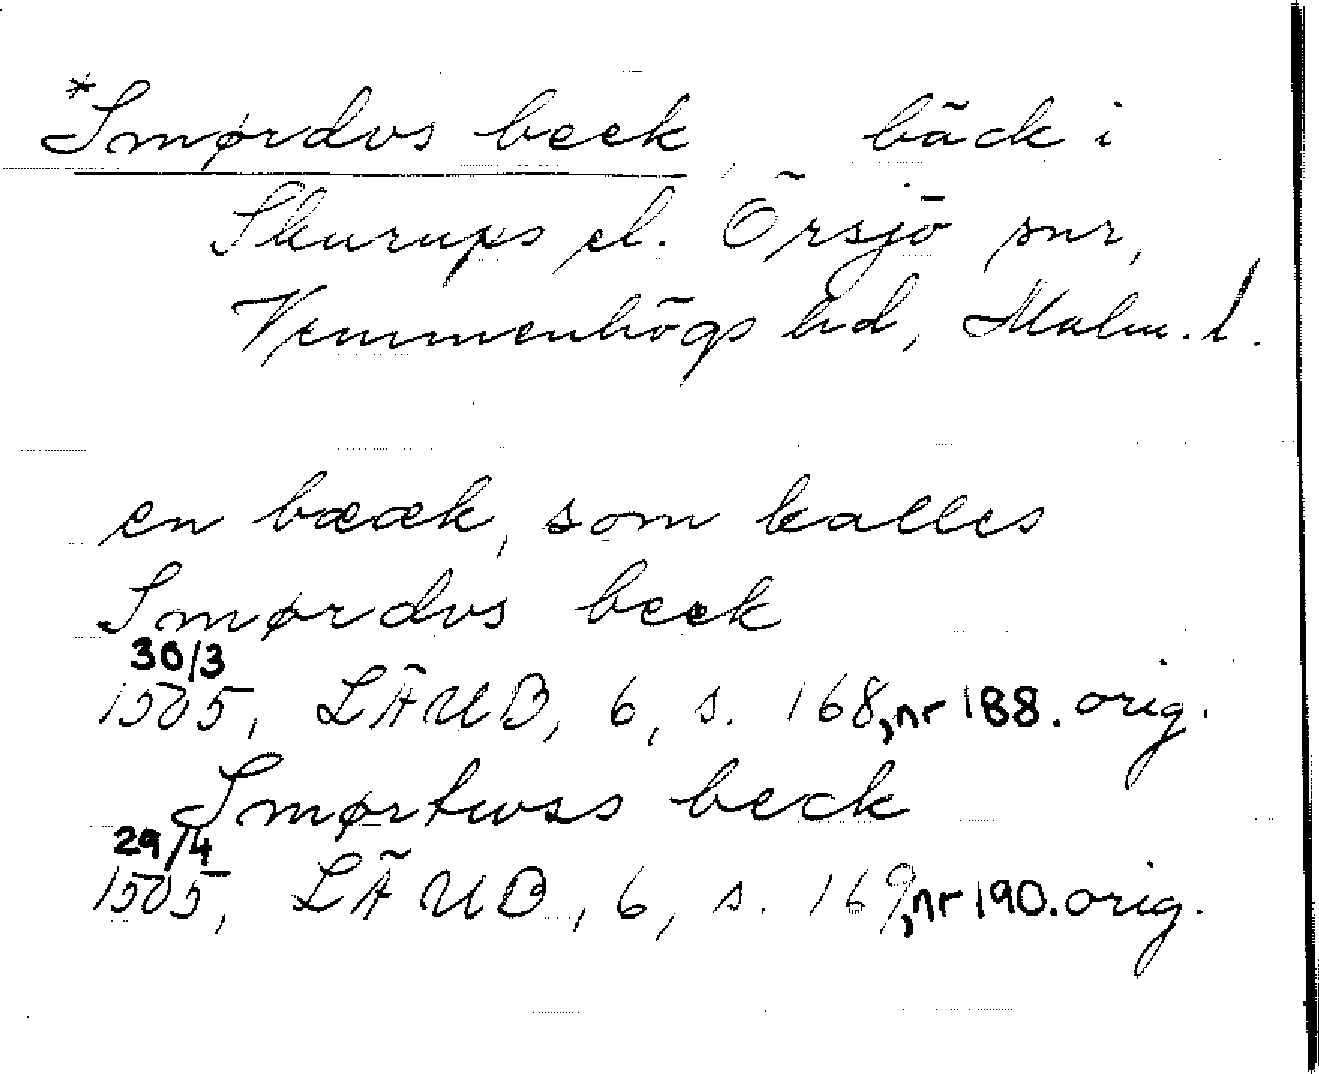 *Smørdvs beek, bäck i
Skurups el. Örsjö snr,
Vemmenhögs hd, Malm. l.
en bææk, som kalles
Smørdvs beek
30/3
1505, LÄUB, 6, s. 168, nr 188. orig.
Smørtwss beck
29/4
1505, LÄUB, 6, s. 169, nr 190. orig.